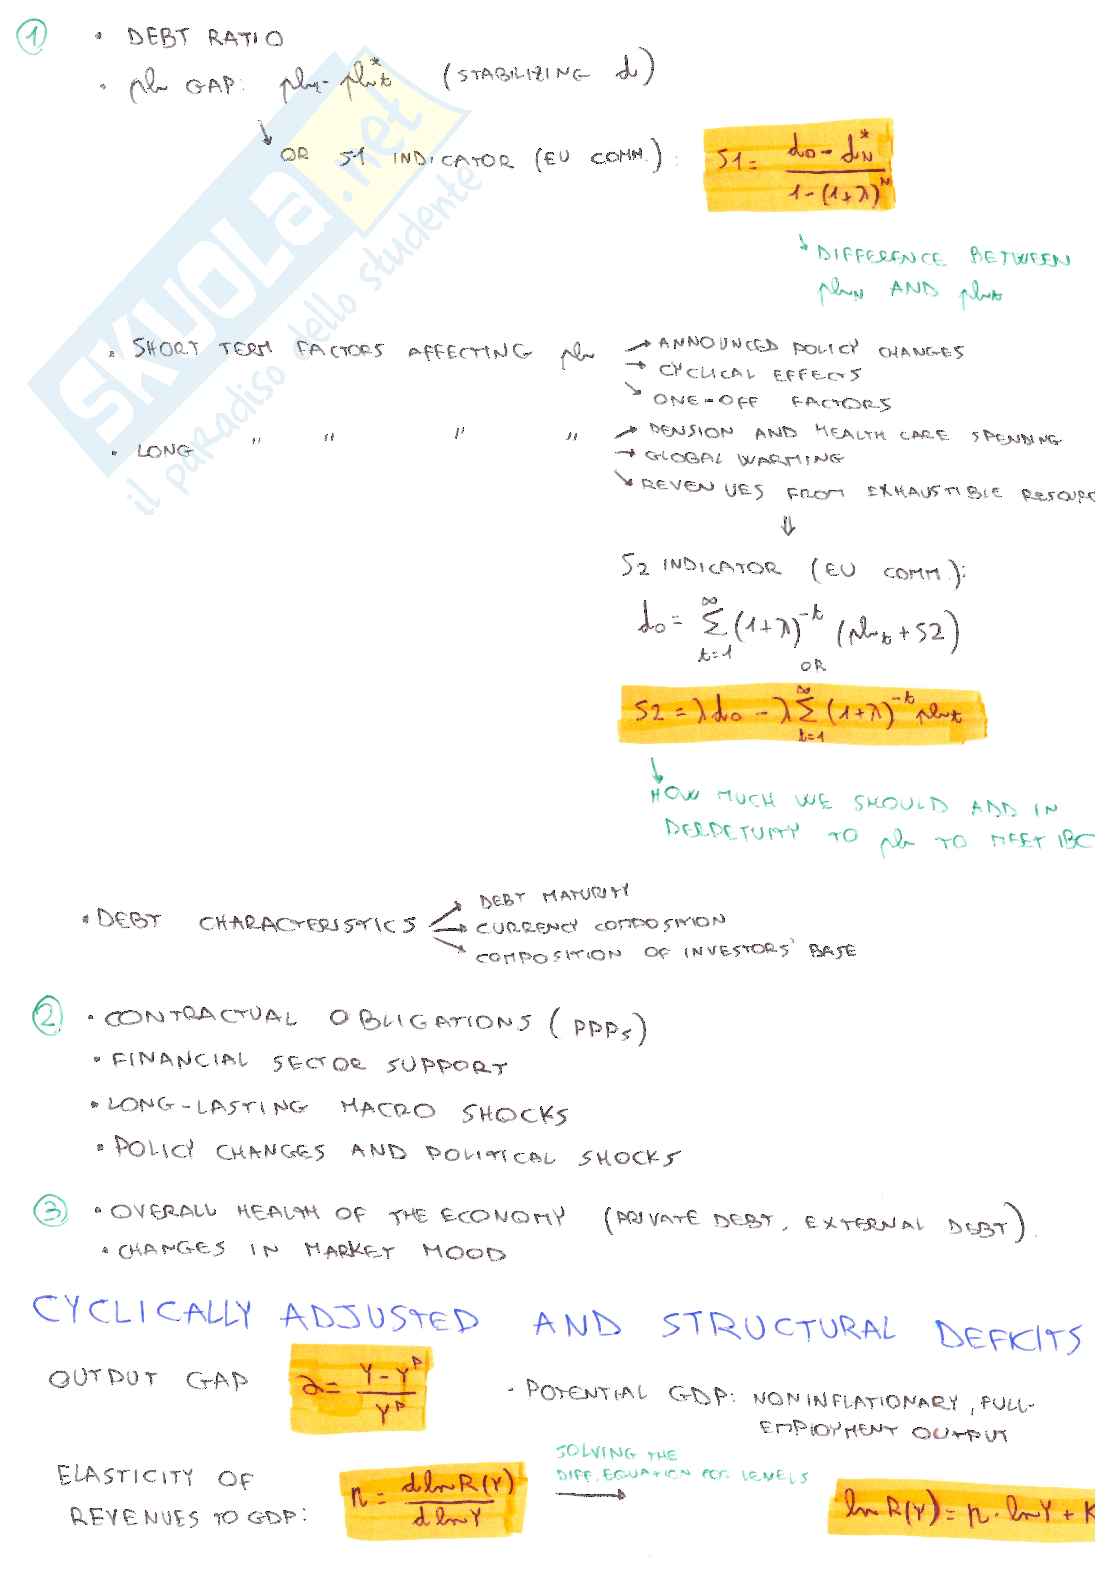 1 • DEBT RATIO
• pb GAP: pb_t - pb*_t (STABILIZING d)
↘ OR S1 INDICATOR (EU COMM.): S1 = (d_0 - d*_N) / (1 - (1+λ)^N)
↘ DIFFERENCE BETWEEN
pb_N AND pb_t
• SHORT TERM FACTORS AFFECTING pb → ANNOUNCED POLICY CHANGES
→ CYCLICAL EFFECTS
↘ ONE-OFF FACTORS
• LONG " " " " → PENSION AND HEALTH CARE SPENDING
→ GLOBAL WARMING
↘ REVENUES FROM EXHAUSTIBLE RESOURC
⇓
S2 INDICATOR (EU COMM.):
d_0 = Σ_{t=1}^{∞} (1+λ)^{-t} (pb_t + S2)
OR
S2 = λd_0 - λ Σ_{t=1}^{∞} (1+λ)^{-t} pb_t
↓
HOW MUCH WE SHOULD ADD IN
PERPETUITY TO pb TO MEET IBC
• DEBT CHARACTERISTICS → DEBT MATURITY
→ CURRENCY COMPOSITION
→ COMPOSITION OF INVESTORS' BASE
2 • CONTRACTUAL OBLIGATIONS (PPPs)
• FINANCIAL SECTOR SUPPORT
• LONG-LASTING MACRO SHOCKS
• POLICY CHANGES AND POLITICAL SHOCKS
3 • OVERALL HEALTH OF THE ECONOMY (PRIVATE DEBT, EXTERNAL DEBT).
• CHANGES IN MARKET MOOD
CYCLICALLY ADJUSTED AND STRUCTURAL DEFICITS
OUTPUT GAP a = (Y - Y^P) / Y^P - POTENTIAL GDP: NON INFLATIONARY, FULL-
EMPLOYMENT OUTPUT
SOLVING THE
DIFF. EQUATION FOR LEVELS
ELASTICITY OF
REVENUES TO GDP: η = d ln R(Y) / d ln Y → ln R(Y) = η · ln Y + K
SKUOLA.net
il paradiso dello studente